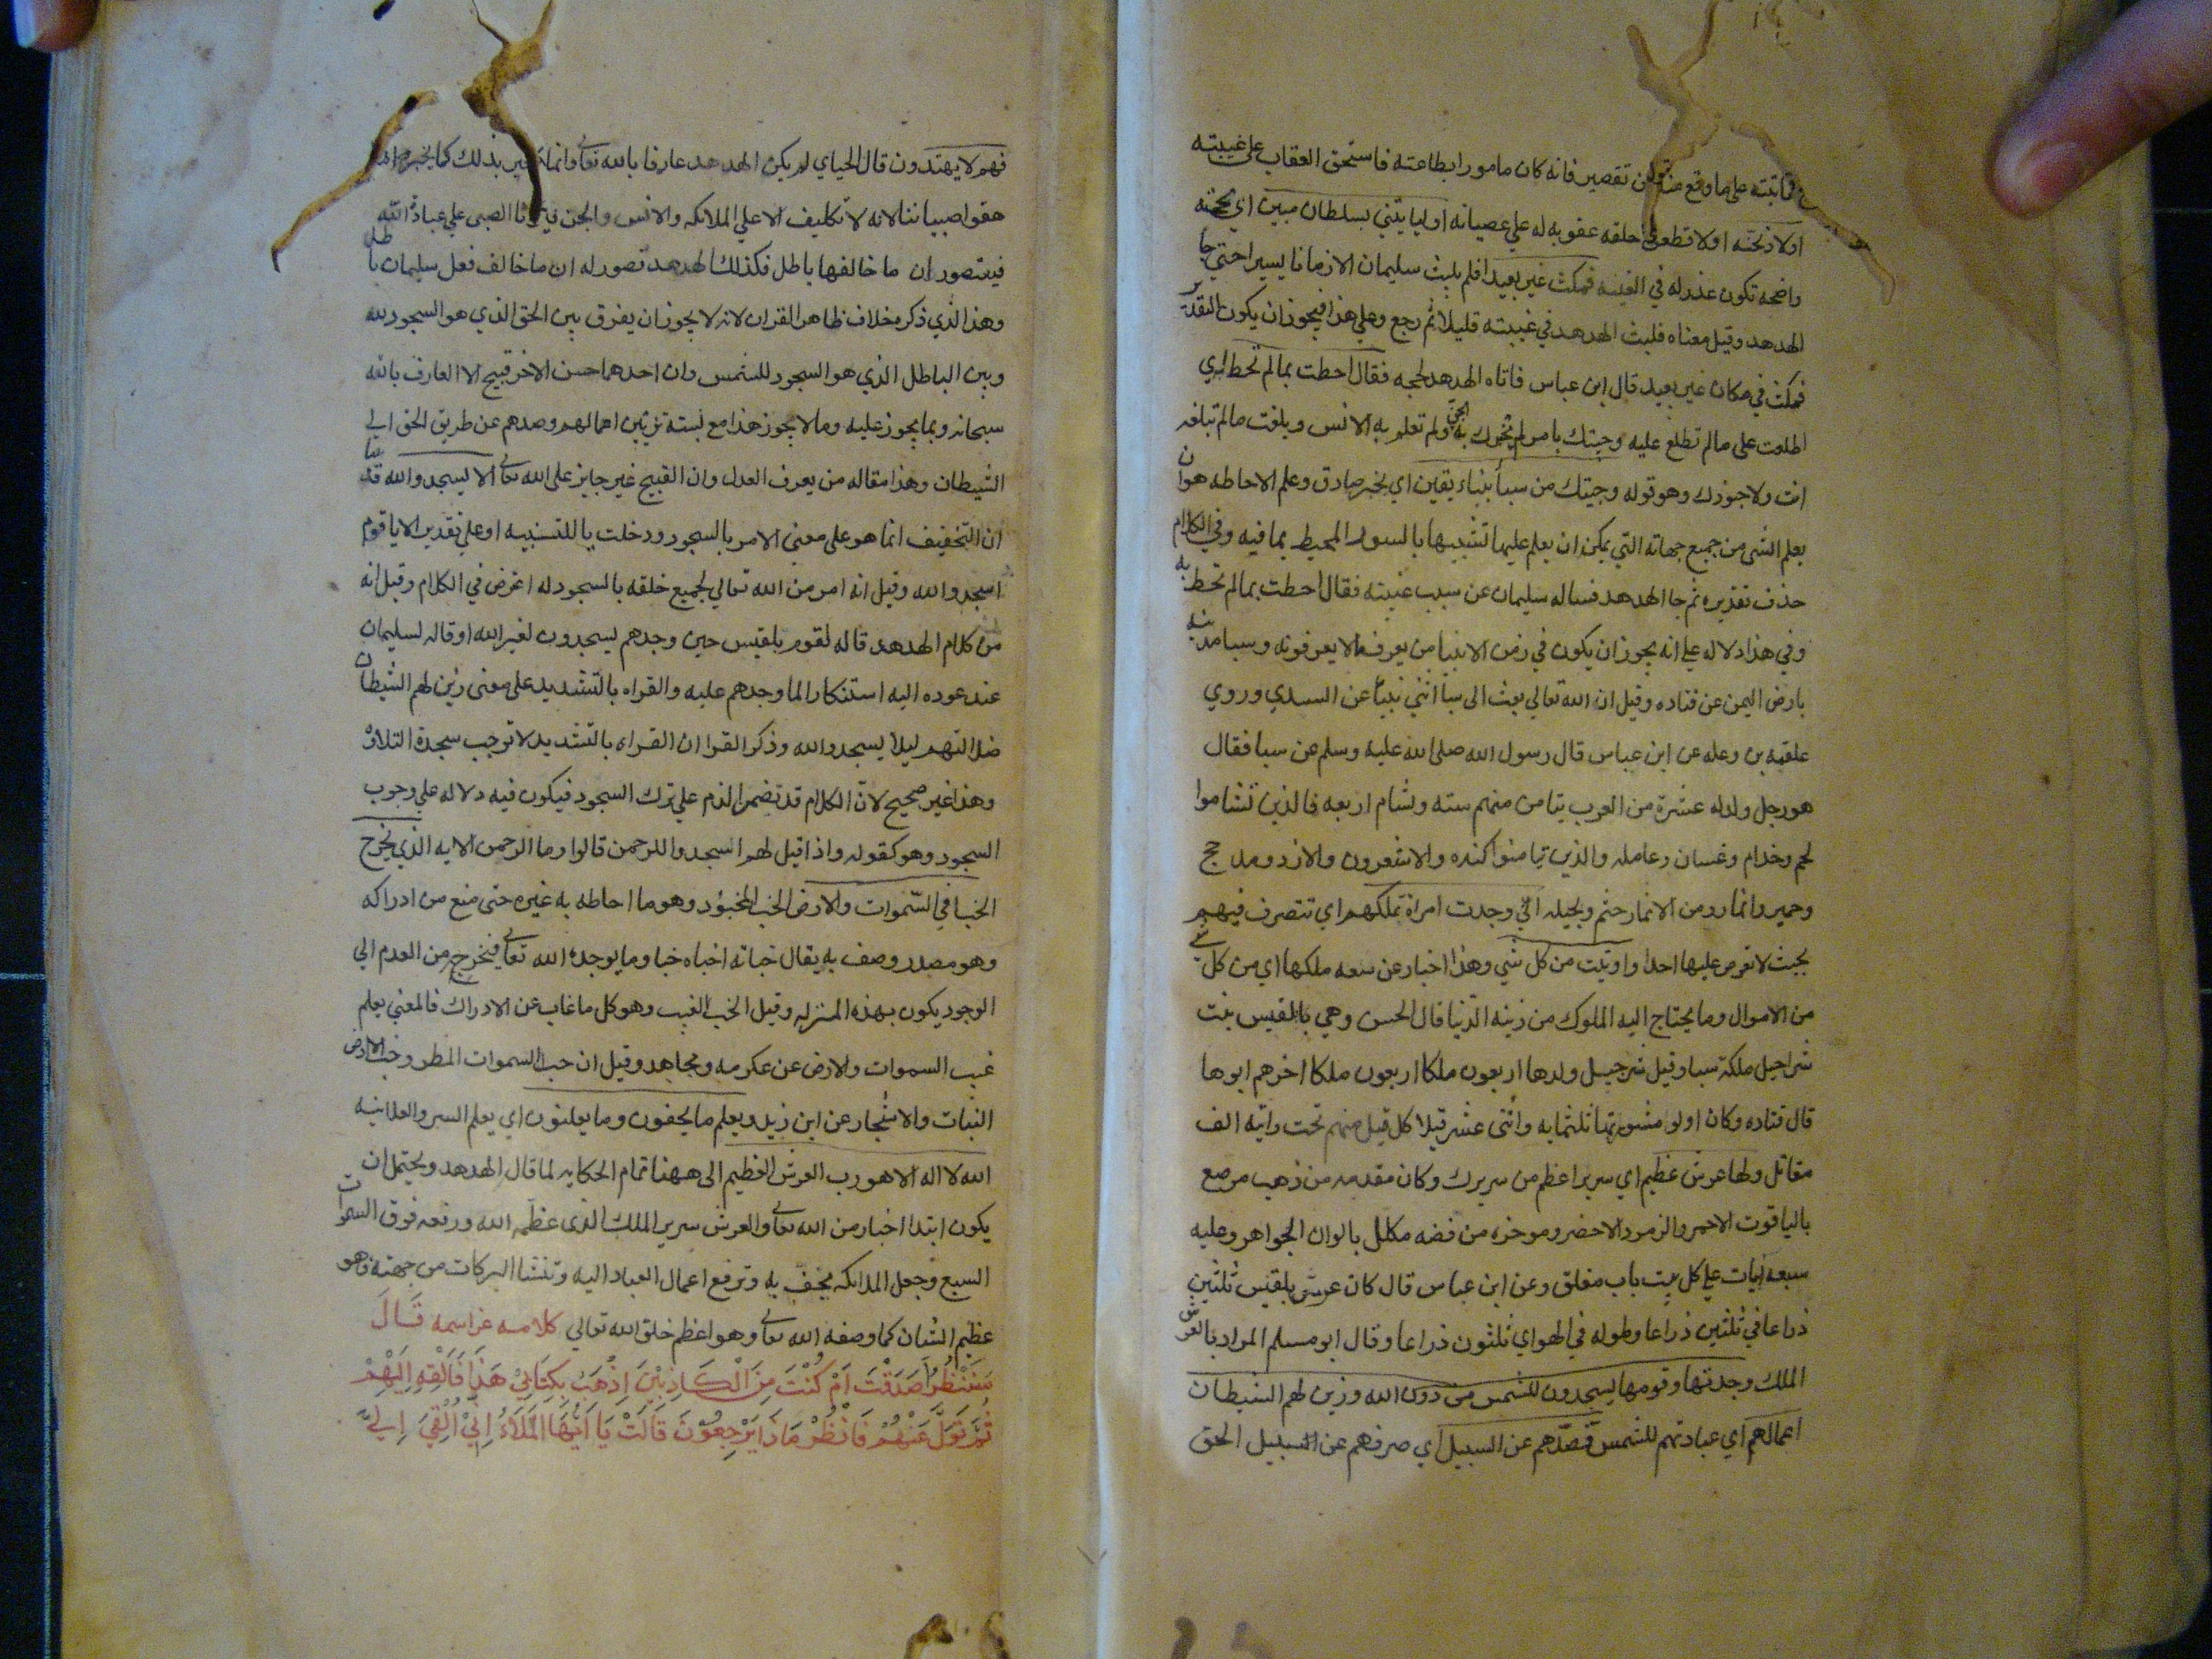 ومعاتبته على ما وقع منه من تقصير فانه كان مامورا بطاعته فاستحق العقاب على غيبته
اولاذبحنه اولاقطعن حلقه عقوبه له علي عصيانه اوليايتني بسلطان مبين اي بحجته
واضحه تكون عذر له في الغيبه فمكث غير بعيد افلم يلبث سليمان الازمانا يسيرا حتي جا
الهدهد وقيل معناه فلبث الهدهد في غيبته قليلا ثم رجع وعلي هذا فيجوز ان يكون التقدير
فمكث في مكان غير بعيد قال ابن عباس فاتاه الهدهد بحجه فقال احطت بما لم تحط به اي
اطلعت على مالم تطلع عليه وجيتك بامر لم يخبرك به الجن ولم تعلم به الانس وبلغت مالم تبلغه
انت ولا جنودك وهو قوله وجيتك من سبأ بنباء يقين اي بخبر صادق وعلم الاحاطه هو ان
يعلم الشي من جميع جهاته التي يمكن ان يعلم عليها تشبيها بالسور المحيط بما فيه وفي الكلام
حذف تقديره ثم جا الهدهد فساله سليمان عن سبب غيبته فقال احطت بمالم تحط به
وفي هذا دلاله علي انه يجوز ان يكون في زمن الانبيا من يعرف مالا يعرفونه وسبا مدينه
بارض اليمن عن قتاده وقيل ان الله تعالي بعث الى سبا اثني نبيا عن السدي وروي
علقمه بن وعله عن ابن عباس قال رسول الله صلى الله عليه وسلم عن سبا فقال
هو رجل ولد له عشرة من العرب يتامن منهم سته وتشام اربعه فالذين تشاموا
لحم وخدام وغسان وعامله والذين تيامنوا كنده والاشعرون والازد ومدحج
وحمير وانمار ومن الانمار حثم وبجيله اني وجدت امراة تملكهم اي تتصرف فيهم
بحيث لا تعرض عليها احد واوتيت من كل شي وهذا اخبار عن سعه ملكها اي من كل شي
من الاموال وما يحتاج اليه الملوك من زينه الدنيا قال الحسن وهي بالقيس بنت
شراحيل ملكة سبا وقيل شرحيل ولدها اربعون ملكا اربعون ملكا اخرهم ابوها
قال قتاده وكان اولو مشورتها ثلثمايه واثنى عشر قيلا كل قيل منهم تحت رايته الف
مقاتل ولها عرش عظيم اي سرير اعظم من سريرك وكان مقدمه من ذهب مرصع
بالياقوت الاحمر والزمرد الاخضر وموخره من فضه مكلل بالوان الجواهر وعليه
سبعه ابيات علي كل بيت باب مغلق وعن ابن عباس قال كان عرش بلقيس ثلثين
ذراعا في ثلثين ذراعا وطوله في الهواي ثلثون ذراعا وقال ابو مسلم المراد بالعرش
الملك وجدتها وقومها يسجدون للشمس من دون الله وزين لهم الشيطان
اعمالهم اي عبادتهم للشمس فصدهم عن السبيل اي صرفهم عن السبيل الحق
فهم لا يهتدون قال الجباي لم يكن الهدهد عارفا بالله تعالى وانما اخبر بذلك كما يخبر
هقوا صبياننا لانه لا تكليف الا علي الملائكه والانس والجن الصبي علي عبادة الله
فيتصور ان ما خالفها باطل فكذلك الهدهد تصور له ان ما خالف فعل سليمان باطل
وهذا الذي ذكر مخلاف ظاهر القران لانه لا يجوز ان يفرق بين الحق الذي هو السجود لله
وبين الباطل الذي هو السجود للشمس وان احدهما حسن الاخر قبيح الا العارف بالله
سبحانه وبما يجوز عليه وما لا يجوز هذا مع نسبته تزيين اعمالهم وصدهم عن طريق الحق الي
الشيطان وهذا مقاله من يعرف العدل وان القبيح غير جايز على الله تعالى الا يسجدوا لله قد بينا
ان التخفيف انما هو على معنى الامر بالسجود ودخلت يا للتنبيه او علي تقدير الا يا قوم
اسجدوا لله وقيل انه امر من الله تعالي لجميع خلقه بالسجود له اعترض في الكلام وقيل انه
من كلام الهدهد قاله لقوم بلقيس حين وجدهم يسجدون لغير الله او قاله لسليمان
عند عوده اليه استنكارا لما وجدهم عليه والقراه بالتشديد على معنى زين لهم الشيطان
ضلالتهم ليلا يسجدوا لله وذكر القرا ان القراه بالتشديد لا توجب سجدة التلاوة
وهذا غير صحيح لان الكلام قد تضمن الذم علي ترك السجود فيكون فيه دلاله علي وجوب
السجود وهو كقوله واذا قيل لهم اسجدوا للرحمن قالوا وما الرحمن الايه الذي يخرج
الخبا في السموات والارض الخب المخبؤ وهو ما احاطه به غيره حتى منع من ادراكه
وهو مصدر وصف به يقال خباته اخباه خبا وما يوجده الله تعالى فيخرجه من العدم الي
الوجود يكون بهذه المنزله وقيل الخب الغيب وهو كل ما غاب عن الادراك فالمعني يعلم
غيب السموات والارض عن عكرمه ومجاهد وقيل ان خب السموات المطر وخب الارض
النبات والاشجار عن ابن زيد ويعلم ما يخفون وما يعلنون اي يعلم السر والعلانيه
الله لا اله الا هو رب العرش العظيم الى ههنا تمام الحكايه لما قال الهدهد ويحتمل ان
يكون ابتدا اخبار من الله تعالى والعرش سرير الملك الذي عظمه الله ورفعه فوق السموات
السبع وجعل الملائكه يحف به وترفع اعمال العباد اليه وتنشا البركات من جهته فهو
عظيم الشان كما وصفه الله تعالى وهو اعظم خلق الله تعالي كلامه عز اسمه قَالَ
سَنَنْظُرُ اَصَدَقْتَ اَمْ كُنْتَ مِنَ الْكَاذِبِيْنَ اِذْهَبْ بِكِتَابِيْ هَذَا فَاَلْقِهِ اِلَيْهِمْ
ثُمَّ تَوَلَّ عَنْهُمْ فَانْظُرْ مَاذَا يَرْجِعُوْنَ قَالَتْ يَا اَيُّهَا الْمَلَاءُ اِنِّيْ اُلْقِيَ اِلَيَّ